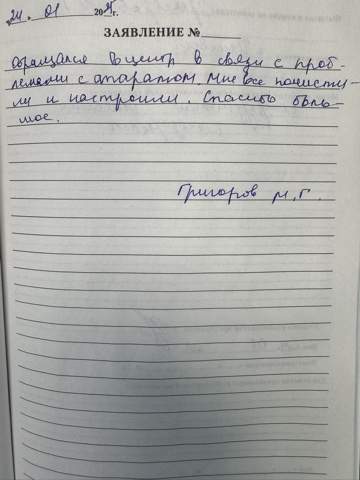 24. 01 20 г.
ЗАЯВЛЕНИЕ №
Обращался в центр в связи с проб-
лемами с апаратом. Мне все почисти-
ли и настроили. Спасибо боль-
шое.
Григоров М. Г.